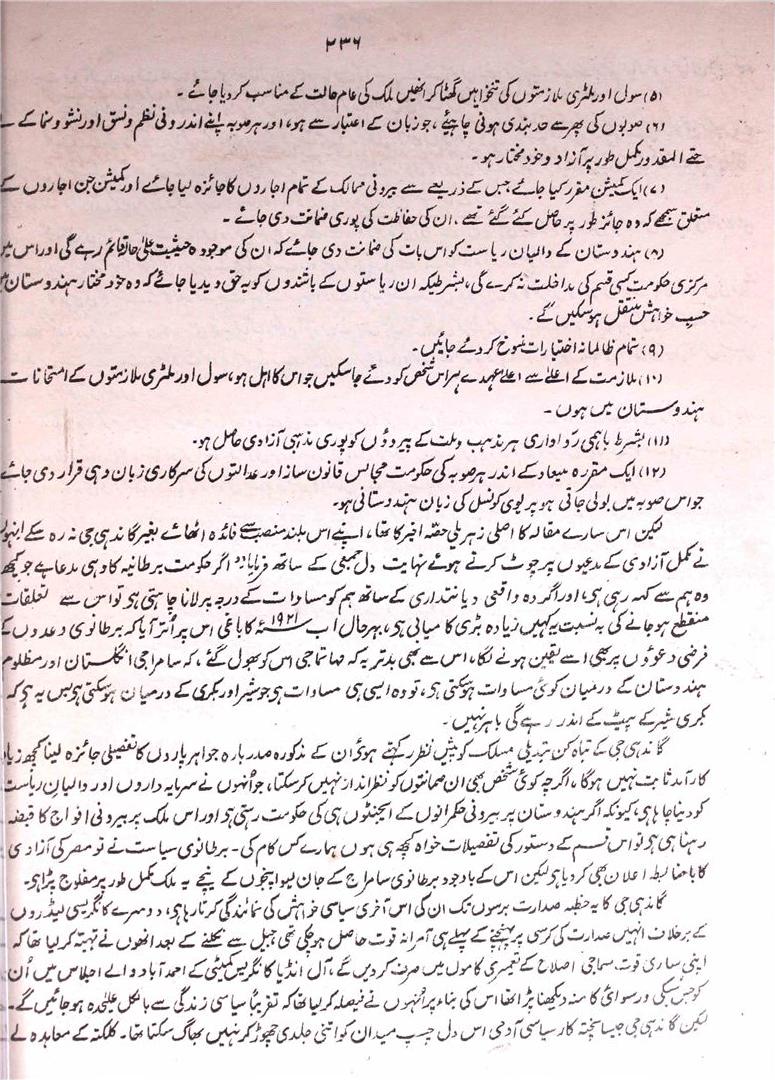 ۲۳۶
(۵) سول اور ملٹری ملازمتوں کی تنخواہیں گھٹا کر انھیں ملک کی عام حالت کے مناسب کر دیا جائے۔
(۶) صوبوں کی پھر سے حد بندی ہونی چاہیئے، جو زبان کے اعتبار سے ہو، اور ہر صوبہ اپنے اندرونی نظم و نسق اور نشو و نما کے لئے
حتے المقدور مکمل طور پر آزاد و خود مختار ہو۔
(۷) ایک کمیشن مقرر کیا جائے جس کے ذریعے سے بیرونی ممالک کے تمام اجاروں کا جائزہ لیا جائے اور کمیشن جن اجاروں کے
متعلق سمجھے کہ وہ جائز طور پر حاصل کئے گئے تھے، ان کی حفاظت کی پوری ضمانت دی جائے۔
(۸) ہندوستان کے والیان ریاست کو اس بات کی ضمانت دی جائے کہ ان کی موجودہ حیثیت علیٰ حالہ قائم رہے گی اور اس میں
مرکزی حکومت کسی قسم کی مداخلت نہ کرے گی، بشرطیکہ ان ریاستوں کے باشندوں کو یہ حق دیدیا جائے کہ وہ خود مختار ہندوستان میں
حسب خواہش منتقل ہو سکیں گے۔
(۹) تمام ظالمانہ اختیارات منسوخ کر دئے جائیں۔
(۱۰) ملازمت کے اعلےٰ سے اعلےٰ عہدے ہر اس شخص کو دئے جا سکیں جو اس کا اہل ہو، سول اور ملٹری ملازمتوں کے امتحانات
ہندوستان میں ہوں۔
(۱۱) بشرط باہمی رواداری ہر مذہب و ملت کے پیروؤں کو پوری مذہبی آزادی حاصل ہو۔
(۱۲) ایک مقررہ میعاد کے اندر ہر صوبہ کی حکومت مجالس قانون ساز اور عدالتوں کی سرکاری زبان وہی قرار دی جائے
جو اس صوبہ میں بولی جاتی ہو پریوی کونسل کی زبان ہندوستانی ہو۔
لیکن اس سارے مقالہ کا اصلی زہریلی حصہ اخیر کا تھا، اپنے اس بلند منصب سے فائدہ اٹھائے بغیر گاندہی جی نہ رہ سکے انہوں
نے مکمل آزادی کے مدعیوں پر چوٹ کرتے ہوئے نہایت دل جمعی کے ساتھ فرمایا "اگر حکومت برطانیہ کا وہی مدعا ہے جو کچھ
وہ ہم سے کہہ رہی ہی، اور اگر وہ واقعی دیانتداری کے ساتھ ہم کو مساوات کے درجہ پر لانا چاہتی ہی تو اس سے تعلقات
منقطع ہو جانے کی بہ نسبت یہ کہیں زیادہ بڑی کامیابی ہی، بہرحال اب ۱۹۲۱ء کا باغی اس پر اتر آیا کہ برطانوی وعدوں کے
فرضی دعوؤں پر بھی اسے یقین ہونے لگا، اس سے بھی بدتر یہ کہ مہاتما جی اس کو بھول گئے، کہ سامراجی انگلستان اور مظلوم
ہندوستان کے درمیان کوئی مساوات ہو سکتی ہی، تو وہ ایسی ہی مساوات ہی جو شیر اور بکری کے درمیان ہو سکتی ہو بس یہ ہو کہ
بکری شیر کے پیٹ کے اندر رہے گی باہر نہیں۔
گاندہی جی کے تباہ کن تبدیلی مسلک کو پیش نظر رکھتے ہوئے ان کے مذکورہ صدر بارہ جواہر پاروں کا تفصیلی جائزہ لینا کچھ زیادہ
کارآمد ثابت نہیں ہوگا، اگرچہ کوئی شخص بھی ان ضمانتوں کو نظر انداز نہیں کر سکتا، جو انہوں نے سرمایہ داروں اور والیان ریاست
کو دینا چاہا ہی، کیونکہ اگر ہندوستان پر بیرونی حکمرانوں کے ایجنٹوں ہی کی حکومت رہتی ہی اور اس ملک پر بیرونی افواج کا قبضہ
رہنا ہی ہی تو اس قسم کے دستور کی تفصیلات خواہ کچھ ہی ہوں ہمارے کس کام کی۔ برطانوی سیاست نے تو مصر کی آزادی
کا باضابطہ اعلان بھی کر دیا ہی لیکن اس کے باوجود برطانوی سامراج کے جان لیوا پنجوں کے نیچے یہ ملک مکمل طور پر مفلوج پڑا ہی۔
گاندہی جی کا یہ خطبہ صدارت برسوں تک ان کی اس آخری سیاسی خواہش کی نمائندگی کرتا رہا ہی، دوسرے کانگریسی لیڈروں
کے برخلاف انہیں صدارت کی کرسی پر پہنچنے کے پہلے ہی آمرانہ قوت حاصل ہو چکی تھی جیل سے نکلنے کے بعد انھوں نے تہیہ کر لیا تھا کہ
اپنی ساری قوت سماجی اصلاح کے تعمیری کاموں میں صرف کر دیں گے، آل انڈیا کانگریس کمیٹی کے احمد آباد والے اجلاس میں اُن
کو جس سبکی و رسوائی کا منہ دیکھنا پڑا تھا اس کی بناء پر انھوں نے فیصلہ کر لیا تھا کہ تقریباً سیاسی زندگی سے بالکل علیحدہ ہو جائیں گے۔
لیکن گاندہی جی جیسا پختہ کار سیاسی آدمی اس دل چسپ میدان کو اتنی جلدی چھوڑ کر نہیں بھاگ سکتا تھا۔ کلکتہ کے معاہدہ نے